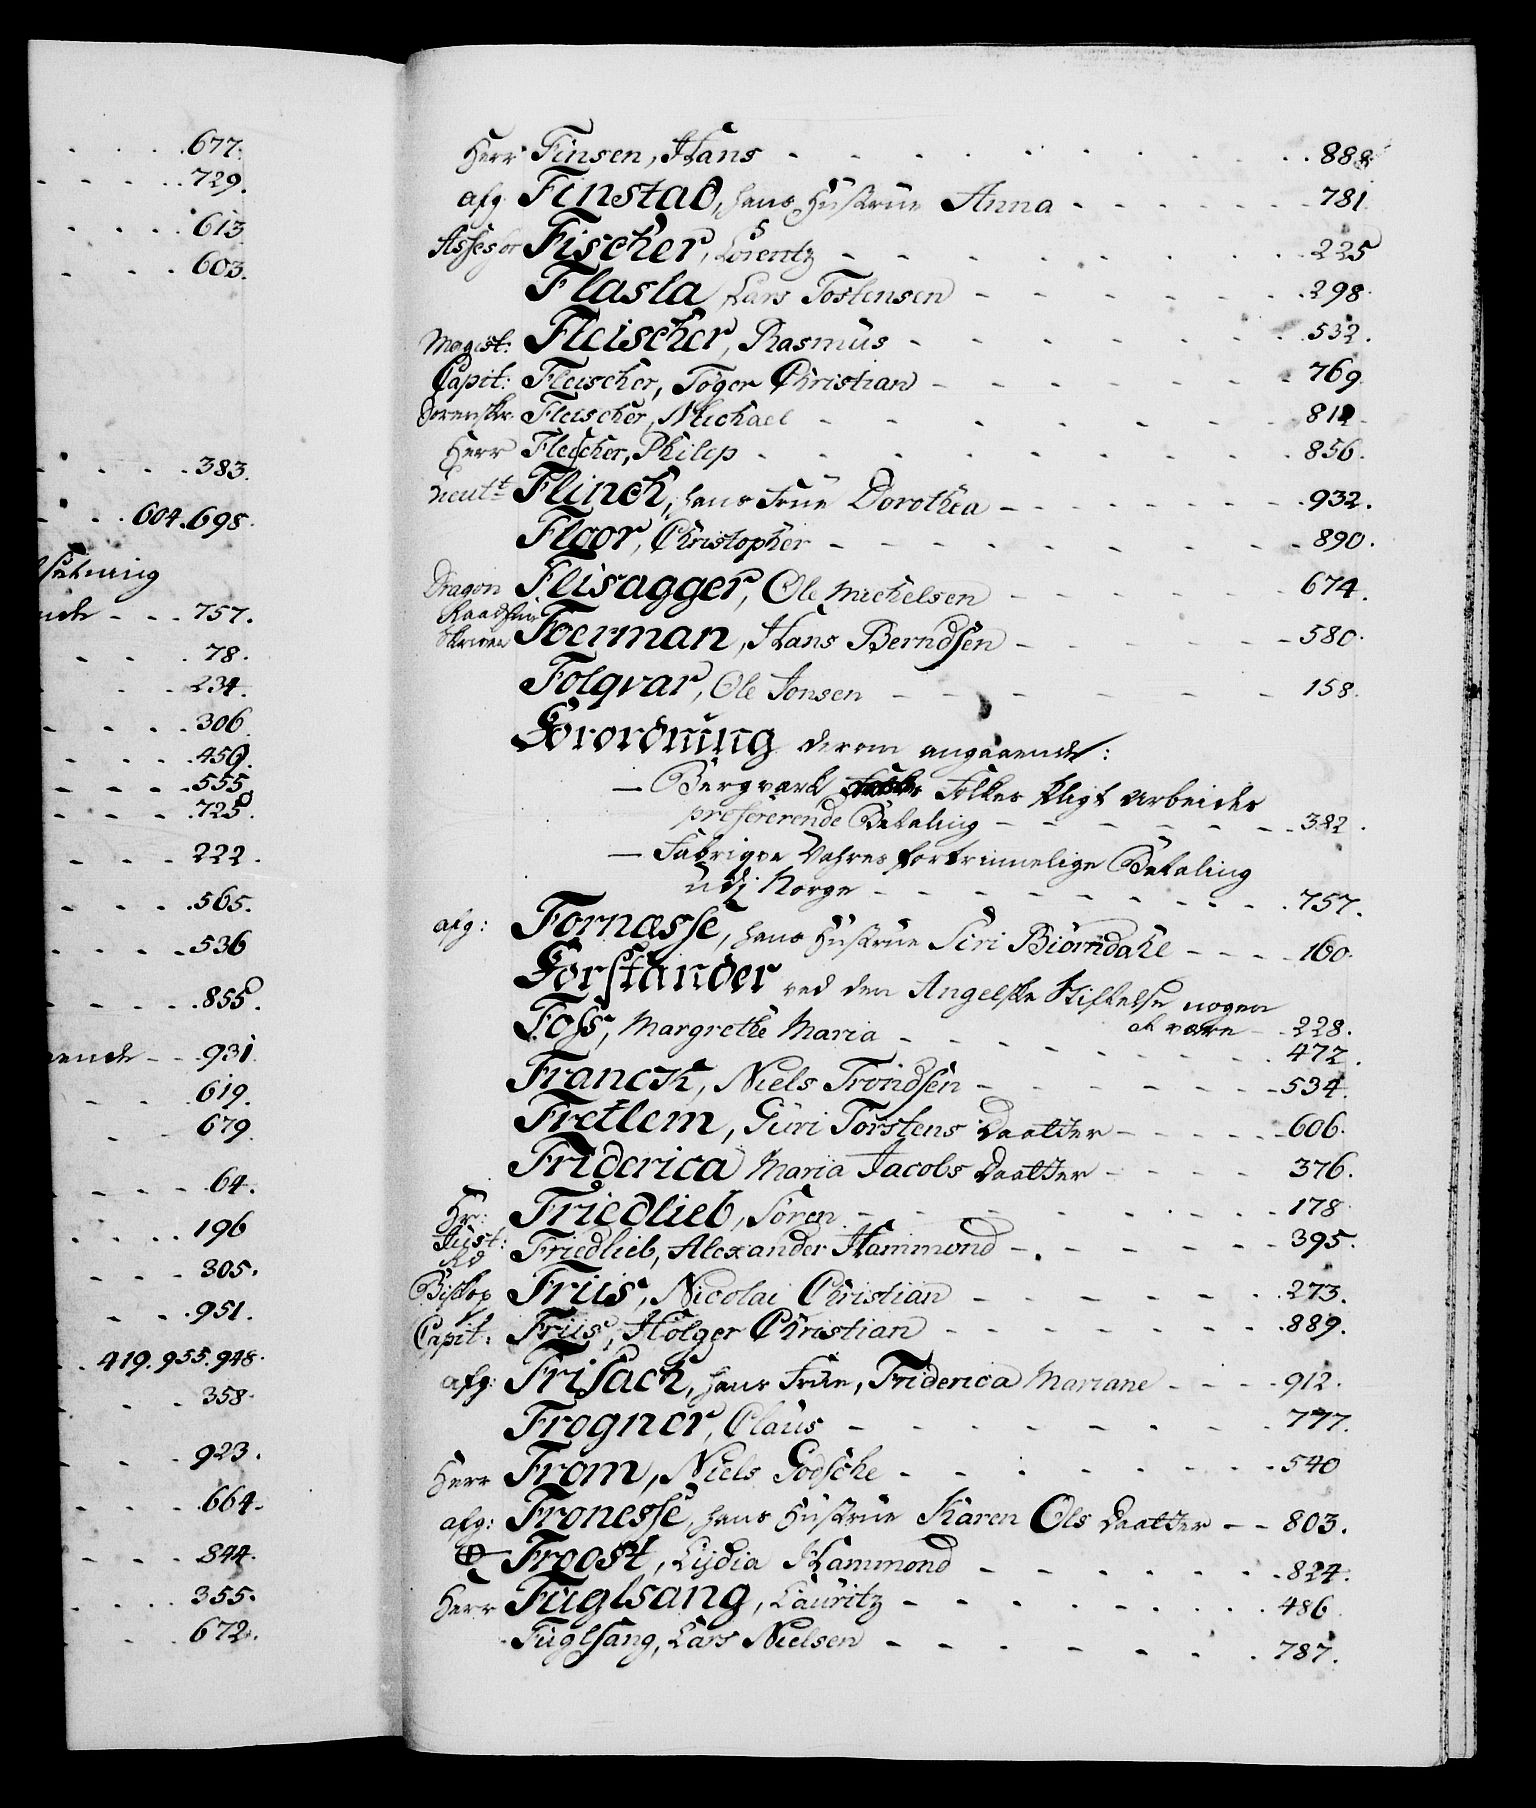 677.
729.
613
603.
383.
604.698.
757.
78.
234.
306
459.
555.
725.
222.
565.
536
855.
931
619.
679
64.
196
305.
951.
419.955.948.
358.
923.
664.
844.
355.
672.
Herr Finsen, Hans 888
afg Finstad, hans Hustrue Anna 781
Assessor Fischer, Lorentz 225
Flasla Lars Tostensen 298.
Magist: Fleischer, Rasmus 532.
Capit: Fleischer, Töger Christian 769
Fleischer, Michael 812
Herr Fleischer, Philip 856.
Lieutt Flinch, hans Frue Dorothea 932.
Floor, Christopher 890.
Dragon Flisagger, Ole Michelsen 674.
Raadstue
Skriver Foerman, Hans Berndsen 580.
Folqvar, Ole Jonsen 158.
Forordning derom angaaende:
Bergværk Folkes Arbeides
preferende Betaling 382.
Fabriqve Vahres fortrinnelige Betaling
udj Norge 757.
afg: Fornæsse, hans Hustrue Siri Biörndahl 160.
Forstander ved den Angelske Stiftelse nogen
at være 228.
Foss, Margrethe Maria 472.
Franck, Niels Trondsen 534.
Fretlem, Guri Torstens Daatter 606.
Friderica Maria Jacobs Daatter 376.
Hr: Friedlieb, Sören 178
Just:
Rd Friedlieb, Alexander Hammond 395.
Biskop Friis, Nicolai Christian 273.
Capit: Friis, Holger Christian 889.
afg: Frisach, hans Frue, Friderica Mariane 912.
Frogner, Claus 777.
Herr From, Niels Godsche 540
afg: Fronesse, hans Hustrue Karen Ols Daatter 803.
Froost, Lydia Hammond 824.
Herr Fuglsang, Lauritz 486
Fuglsang, Lars Nielsen 787.